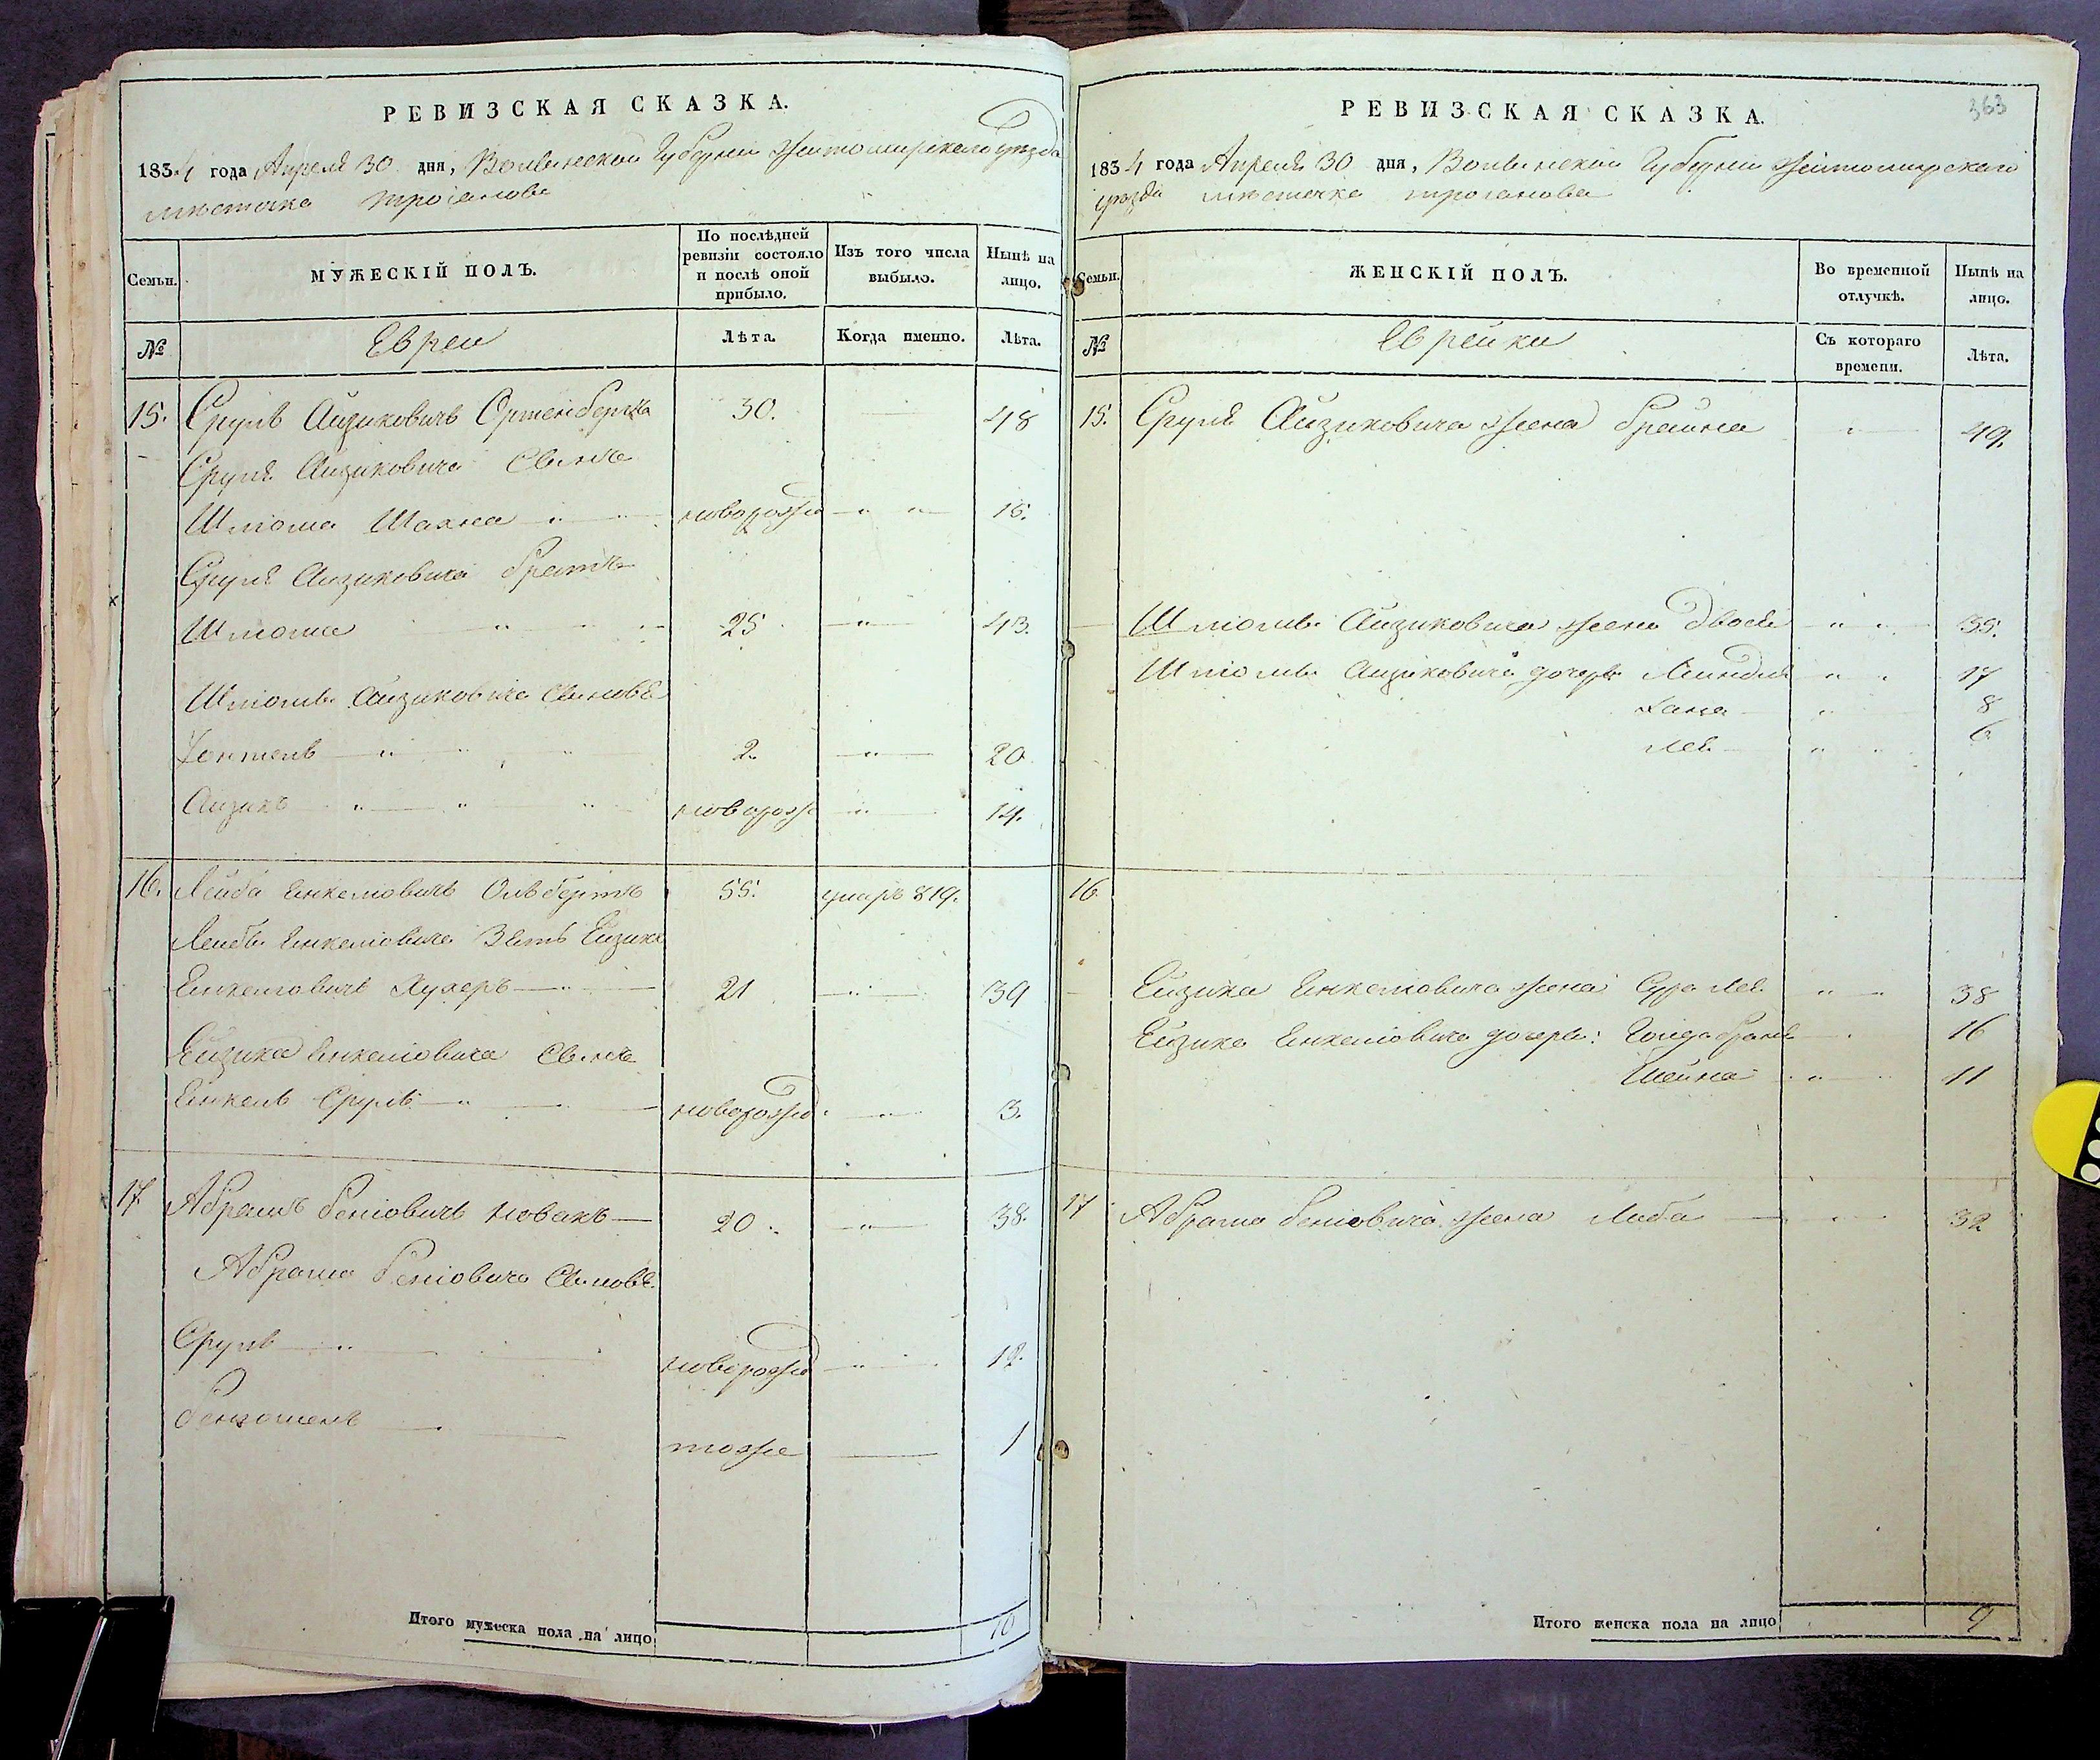 РЕВИЗСКАЯ СКАЗКА.
1834 года Апреля 30 дня, Волынской Губернии Житомирскаго уезда
местечка Троянова
Семьи.
МУЖЕСКІЙ ПОЛЪ.
По послѣдней ревизіи состояло и послѣ оной прибыло.
Изъ того числа выбыло.
Нынѣ на лицо.
№
Евреи
Лѣта.
Когда именно.
Лѣта.
15. Сруль Айзиковичъ 30. 48
Сруля Айзиковича Сынъ
Шлиома Шахна новорожд 15.
Сруля Айзиковича братъ
Шлиома 25 43.
Шлиомы Айзиковича Сыновья
2. 20
Айзикъ новорож 14.
16. Лейба Енкелиовичъ Ольбертъ 55. умеръ 819.
Лейбы Енкелиовича Зять Ейзикъ
Енкелиовичъ Кухеръ 21 39
Ейзика Енкелиовича Сынъ
Енкель Сруль новорожд 3.
17. Абрамъ Бениовичъ Новакъ 20. 38.
Абрама Бениовича Сыновья
Сруль новорожд 12.
тоже 1
Итого мужеска пола на лицо 10
363
РЕВИЗСКАЯ СКАЗКА.
1834 года Апреля 30 дня, Волынской Губернии Житомирскаго
уезда местечка Троянова
Семьи.
ЖЕНСКІЙ ПОЛЪ.
Во временной отлучкѣ.
Нынѣ на лицо.
№
Еврейки
Съ котораго времени.
Лѣта.
15. Сруля Айзиковича жена Брайна 49.
Шлиомы Айзиковича жена Двося 35.
Шлиомы Айзиковича дочери Миндля 17
Хана 8
Лея 6
16.
Ейзика Енкелиовича жена Сура Лея 38
Ейзика Енкелиовича дочери: 16
Шейна 11
17 Абрама Бениовича жена Либа 32
Итого женска пола на лицо 9